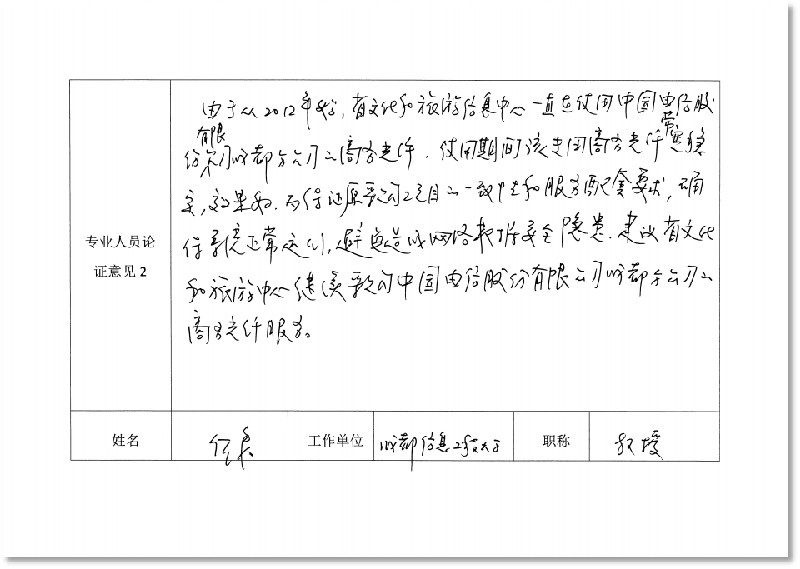 由于从2012年始，省文化和旅游信息中心一直在使用中国电信股
份有限公司成都分公司的商务光纤，使用期间该专用商务光纤带宽稳
定，效果好。为保证原采购项目的一致性和服务配套要求，确
保系统正常运行，避免造成网络数据安全隐患，建议省文化
和旅游中心继续采购中国电信股份有限公司成都分公司的
商务光纤服务。
专业人员论
证意见 2
姓名 工作单位 成都信息工程大学 职称 教授